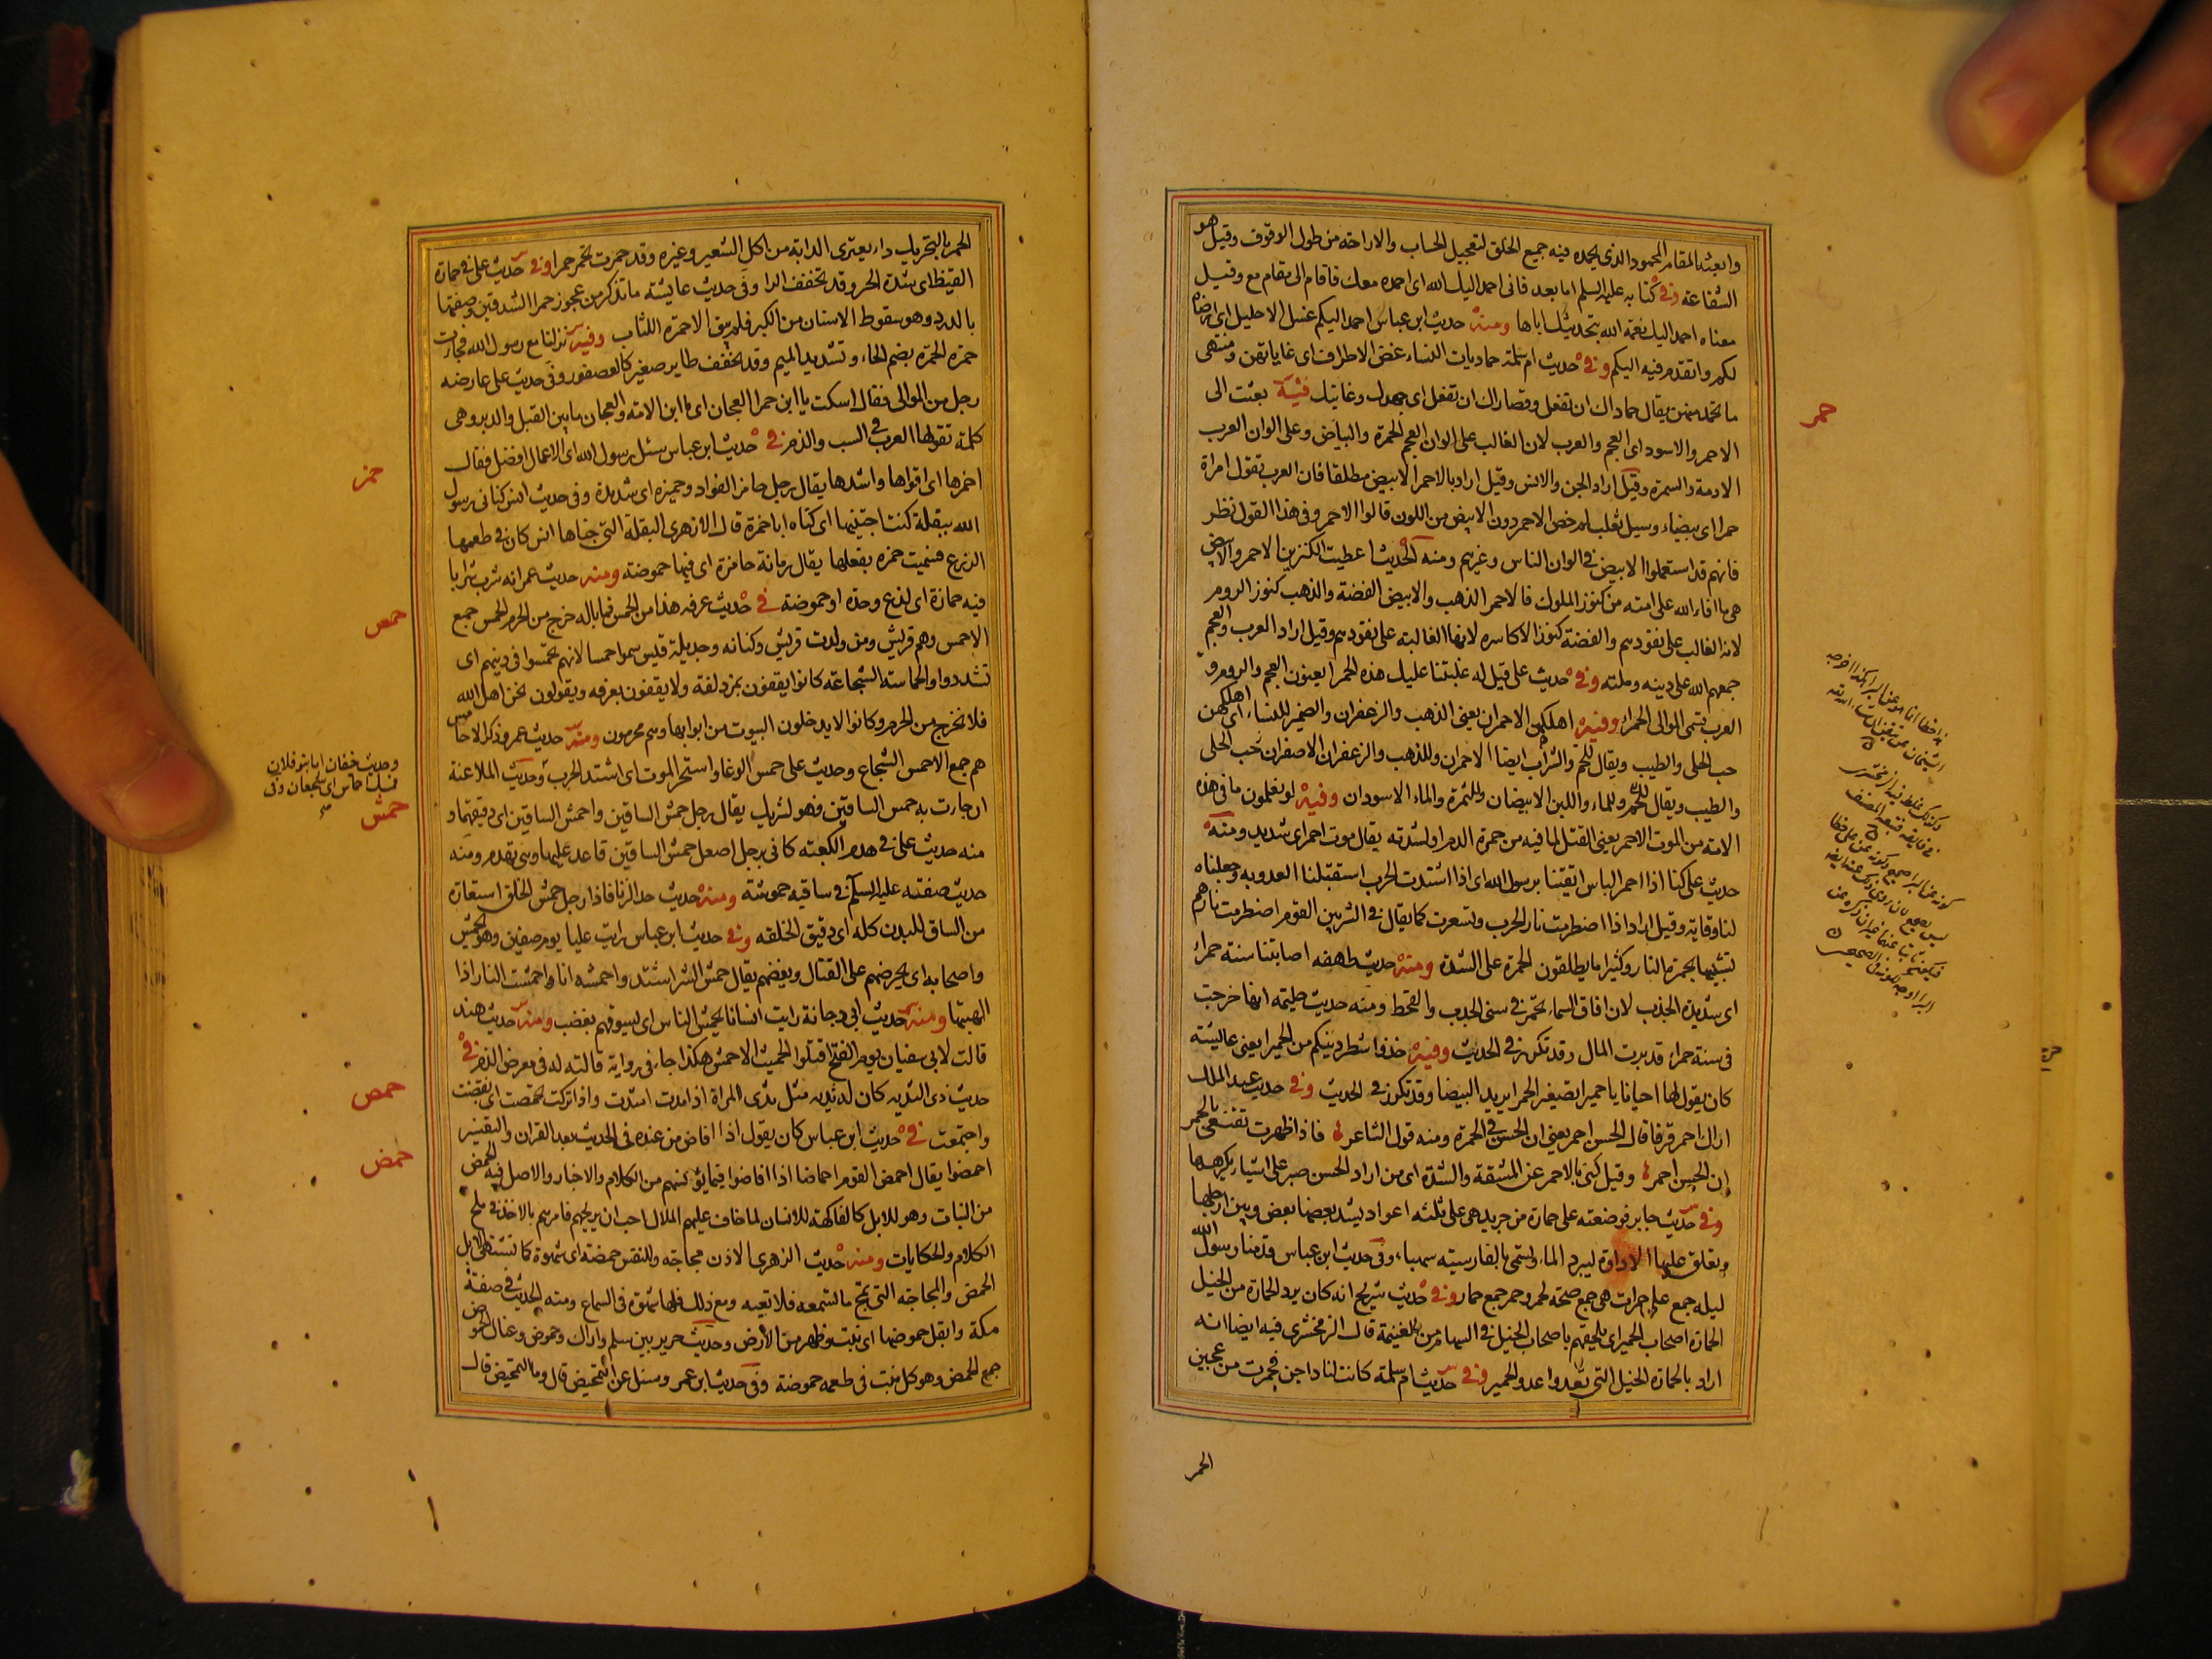 وابعثه المقام المحمود الذى يحمده فيه جميع الخلق لتعجيل الحساب والاراحة من طول الوقوف وقيل هو
الشفاعة وفى كتابه عليه السلم اما بعد فانى احمد اليك الله اى احمده معك فاقام الى مقام مع وقيل
معناه احمد اليك نعمة الله بتحديثك اياها ومنه حديث ابن عباس احمد اليكم غسل الاحليل اى ارضاه
لكم واتقدم فيه اليكم وفى حديث ام سلمة حماديات النساء غض الاطراف اى غاياتهن ومنتهى
ما يحمد منهن يقال حماداك ان تفعل وقصاراك ان تفعل اى جهدك وغايتك فيه بعثت الى
الاحمر والاسود اى العجم والعرب لان الغالب على الوان العجم الحمرة والبياض وعلى الوان العرب
الادمة والسمرة وقيل اراد الجن والانس وقيل اراد بالاحمر الابيض مطلقا فان العرب تقول امراة
حمرا اى بيضاء وسيل ثعلب لم خص الاحمر دون الابيض من اللون قالوا الاحمر وفى هذا القول نظر
فانهم قد استعملوا الابيض فى الوان الناس وغيرهم ومنه الحديث اعطيت الكنزين الاحمر والابيض
هى ما افاء الله على امته من كنوز الملوك فالاحمر الذهب والابيض الفضة والذهب كنوز الروم
لانه الغالب على نقودهم والفضة كنوز الاكاسره لانها الغالبة على نقودهم وقيل اراد العرب والعجم
جمعهم الله على دينه وملته وفى حديث على قيل له غلبتنا عليك هذه الحمرا يعنون العجم والروم و
العرب تسمى الموالى الحمراء وفيه اهلكهن الاحمران يعنى الذهب والزعفران والضمير للنساء اى اهلكهن
حب الحلى والطيب ويقال للحم والشراب ايضا الاحمران وللذهب والزعفران الاصفران حب الحلى
والطيب ويقال للحم وللماء واللبن الابيضان وللتمرة والماء الاسودان وفيه لو تعلمون ما فى هذه
الامة من الموت الاحمر يعنى القتل لما فيه من حمرة الدم او لشدته يقال موت احمر اى شديد ومنه
حديث على كنا اذا احمر الباس اتقينا برسول الله اى اذا اشتدت الحرب استقبلنا العدو به وجعلناه
لنا وقاية وقيل اراد اذا اضطرمت نار الحرب وتسعرت كما يقال فى الشر بين القوم اضطرمت نارهم
تشبيها بحمرة النار وكثيرا ما يطلقون الحمرة على الشدة ومنه حديث طهفه اصابتنا سنة حمراء
اى شديدة الجدب لان افاق السماء تحمر فى سنى الجدب والقحط ومنه حديث حليمه انها خرجت
فى سنة حمراء قد برت المال وقد تكرر فى الحديث وفيه خذوا شطر دينكم من الحميرا يعنى عائشة
كان يقول لها احيانا يا حميرا تصغير الحمرا يريد البيضا وقد تكرر فى الحديث وفى حديث عبد الملك
اراك احمر قرفا قال الحسن احمر يعنى ان الحسن فى الحمرة ومنه قول الشاعر فاذا ظهرت تقنعى بالحمر
ان الحسن احمر وقيل كنى بالاحمر عن المشقة والشدة اى من اراد الحسن صبر على اشياء يكرهها
وفى حديث جابر فوضعته على حمارة من جريد هى على ثلثه اعواد يشد بعضها ببعض وبين ارجلها
وتعلق عليها الاداوة ليبرد الماء وتسمى بالفارسية سهباء وفى حديث ابن عباس قدمنا رسول الله
ليلة جمع على حمرات هى جمع صحة لحمر وحمر جمع حمار وفى حديث شريح انه كان يرد الحمارة من الخيل
الحمارة اصحاب الحمير اى يلحقهم باصحاب الخيل فى السهام من الغنيمة قال الزمخشرى فيه ايضا انه
اراد بالحمارة الخيل التى تعدوا عدو الحمير وفى حديث ام سلمة كانت لنا داجن فحمرت من عجين
حمر
الحمر
الحمر بالتحريك داء يعترى الدابة من اكل الشعير وغيره وقد حمرت تحمر حمرا وفى حديث على فى حمارة
القيظ اى شدة الحر وقد تخفف الرا وفى حديث عائشة ما تذكر من عجوز حمرا الشدقين وصفتها
بالدرد وهو سقوط الاسنان من الكبر فلم يبق الا حمرة اللثات وفيه نزلنا مع رسول الله فجاءت
حمرة الحمرة بضم الحاء وتشديد الميم وقد تخفف طاير صغير كالعصفور وفى حديث على عارضه
رجل من الموالى فقال اسكت يا ابن حمرا العجان اى يا ابن الامة والعجان ما بين القبل والدبر وهى
كلمة تقولها العرب فى السب والذم فى حديث ابن عباس سئل رسول الله اى الاعمال افضل فقال
احمزها اى اقواها واشدها يقال رجل حامز الفواد وحميزه اى شديده وفى حديث انس كنانى رسول
الله ببقلة كنت اجتنيها اى كناه ابا حمزة قال الازهرى البقلة التى جناها انس كان فى طعمها
اللذع فسميت حمزه بفعلها يقال رمانة حامزة اى فيها حموضة ومنه حديث عمر انه شرب شرابا
فيه حمازة اى لذع وحدة او حموضة فى حديث عرفه هذا من الحمس فما باله خرج من الحرم الحمس جمع
الاحمس وهم قريش ومن ولدت قريش وكنانه وجديلة قيس سموا حمسا لانهم تحمسوا فى دينهم اى
تشددوا والحماسة الشجاعة كانوا يقفون بمزدلفة ولا يقفون بعرفه ويقولون نحن اهل الله
فلا نخرج من الحرم وكانوا لا يدخلون البيوت من ابوابها وهم محرمون ومنه حديث عمر وذكر الاحامس
هم جمع الاحمس الشجاع وحديث على حمس الوغا واستحر الموت اى اشتد الحرب وحديث الملاعنة
ان جاءت به حمش الساقين فهو لشريك يقال رجل حمش الساقين واحمش الساقين اى دقيقهما و
منه حديث على فى هدم الكعبة كانى برجل اصعل حمش الساقين قاعد عليها وهى تهدم ومنه
حديث صفته عليه السلم فى ساقيه حموشة ومنه حديث حد الزنا فاذا رجل حمش الخلق استعارة
من الساق للبدن كله اى دقيق الخلقه وفى حديث ابن عباس رايت عليا يوم صفين وهو يحمش
واصحابه اى يحرضهم على القتال ويغضبهم يقال حمش الشر اشتد واحمشه انا واحمشت النار اذا
الهبتها ومنه حديث ابى دجانة رايت انسانا يحمش الناس اى يسوقهم بغضب ومنه حديث هند
قالت لابى سفيان يوم الفتح اقتلوا الحميت الاحمش هكذا جاء فى رواية قالته له فى معرض الذم فى
حديث ذى الثديه كان له ثديه مثل ثدى المراة اذا مدت امتدت واذا تركت تحمصت اى تقبضت
واجتمعت فى حديث ابن عباس كان يقول اذا افاض من عنده فى الحديث بعد القران والتفسير
احمضوا يقال احمض القوم احماضا اذا افاضوا فيما يؤنسهم من الكلام والاخبار والاصل فيه الحمض
من النبات وهو للابل كالفاكهة للانسان لما خاف عليهم الملال احب ان يريحهم فامرهم بالاخذ فى ملح
الكلام والحكايات ومنه حديث الزهرى الاذن مجاجة وللنفس حمضة اى شهوة كما تشتهى الابل
الحمض والمجاجة التى تمج ما تسمعه فلا تعيه ومع ذلك فلها شهوة فى السماع ومنه الحديث فى صفة
مكة وابقل حموضها اى نبت وظهر من الارض وحديث جرير بين سلم واراك وحموض وعناك الحموض
جمع الحمض وهو كل نبت فى طعمه حموضة وفى حديث ابن عمر وسئل عن التحميض قال وما التحميض قال
حمز
حمس
وحديث خفان اما بنو فلان
فمسك احماس اى شجعان وفى
حمش
حمص
حمض